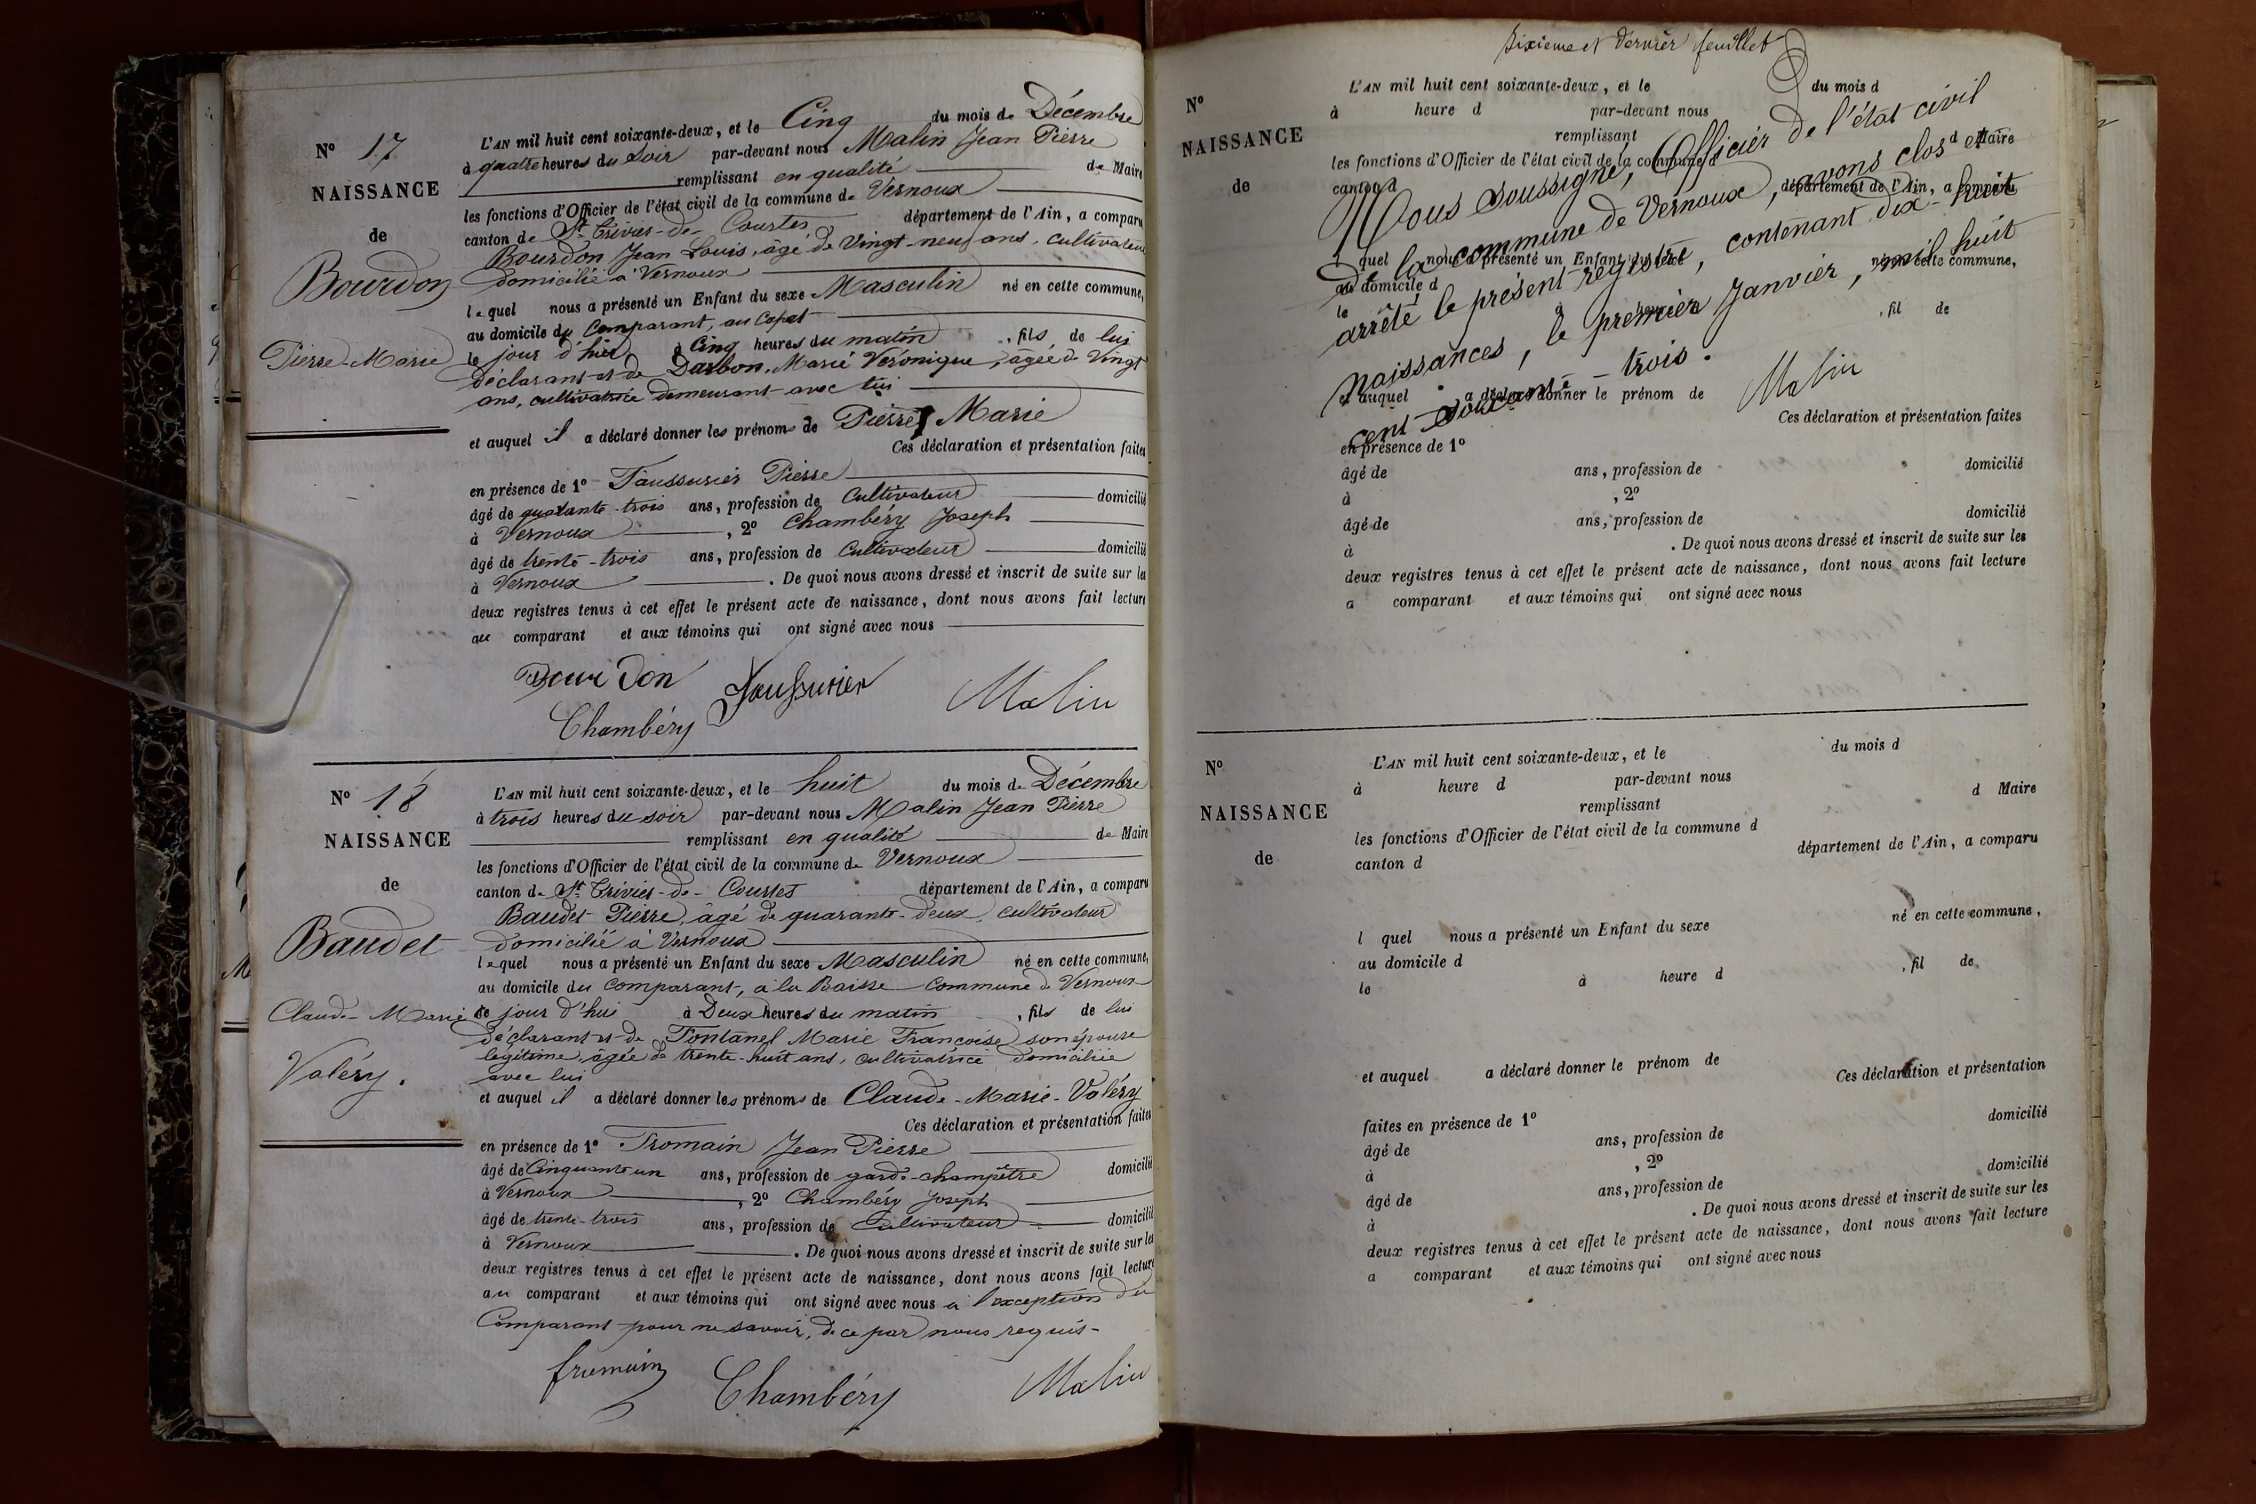 N° 17
NAISSANCE
de
Bourdon
Pierre-Marie
L'AN mil huit cent soixante-deux, et le Cinq du mois de Décembre
à quatre heures du soir par-devant nous Malin Jean Pierre
remplissant en qualité de Maire
les fonctions d'Officier de l'état civil de la commune de Vernoux
canton de St Trivier-de-Courtes département de l'Ain, a comparu
Bourdon Jean Louis, âgé de vingt-neuf ans, cultivateur
domicilié à Vernoux
lequel nous a présenté un Enfant du sexe Masculin né en cette commune,
au domicile du Comparant, au
le jour d'hier à Cinq heures du matin, fils de lui
déclarant et de Darbon, Marie Véronique, âgée de vingt
ans, cultivatrice demeurant avec lui
et auquel il a déclaré donner les prénoms de Pierre Marie
Ces déclaration et présentation faites
en présence de 1° Faussurier Pierre
âgé de quarante-trois ans, profession de Cultivateur domicilié
à Vernoux, 2° Chambéry Joseph
âgé de trente-trois ans, profession de Cultivateur domicilié
à Vernoux. De quoi nous avons dressé et inscrit de suite sur les
deux registres tenus à cet effet le présent acte de naissance, dont nous avons fait lecture
au comparant et aux témoins qui ont signé avec nous
Bourdon Faussurier Malin
Chambéry
N° 18
NAISSANCE
de
Baudet
Claude-Marie
Valéry.
L'AN mil huit cent soixante-deux, et le huit du mois de Décembre
à trois heures du soir par-devant nous Malin Jean Pierre
remplissant en qualité de Maire
les fonctions d'Officier de l'état civil de la commune de Vernoux
canton de St Trivier-de-Courtes département de l'Ain, a comparu
Baudet Pierre, âgé de quarante-deux, cultivateur
domicilié à Vernoux
lequel nous a présenté un Enfant du sexe Masculin né en cette commune,
au domicile du Comparant, à la Baisse Commune de Vernoux
le jour d'hui à Deux heures du matin, fils de lui
déclarant et de Fontanel Marie Françoise, son épouse
légitime, âgée de trente-huit ans, cultivatrice domiciliée
avec lui
et auquel il a déclaré donner les prénoms de Claude-Marie-Valéry
Ces déclaration et présentation faites
en présence de 1° Fromain Jean Pierre
âgé de Cinquante un ans, profession de garde-champêtre domicilié
à Vernoux, 2° Chambéry Joseph
âgé de trente-trois ans, profession de Cultivateur domicilié
à Vernoux. De quoi nous avons dressé et inscrit de suite sur les
deux registres tenus à cet effet le présent acte de naissance, dont nous avons fait lecture
au comparant et aux témoins qui ont signé avec nous à l'exception du
Comparant pour ne savoir, de ce par nous requis-
fromain Chambéry Malin
Sixième et Dernier feuillet
N°
NAISSANCE
de
L'AN mil huit cent soixante-deux, et le du mois d
à heure d par-devant nous
remplissant d Maire
les fonctions d'Officier de l'état civil de la commune d
canton d département de l'Ain, a comparu
Nous soussigné, Officier de l'état civil
de la commune de Vernoux, avons clos et
arrêté le présent registre, contenant dix-huit
naissances, le premier Janvier, mil huit
cent soixante-trois.
Malin
l quel nous a présenté un Enfant du sexe né en cette commune,
au domicile d
le à heure d, fil de
et auquel a déclaré donner le prénom de
Ces déclaration et présentation faites
en présence de 1°
âgé de ans, profession de domicilié
à , 2°
âgé de ans, profession de domicilié
à . De quoi nous avons dressé et inscrit de suite sur les
deux registres tenus à cet effet le présent acte de naissance, dont nous avons fait lecture
a comparant et aux témoins qui ont signé avec nous
N°
NAISSANCE
de
L'AN mil huit cent soixante-deux, et le du mois d
à heure d par-devant nous
remplissant d Maire
les fonctions d'Officier de l'état civil de la commune d
canton d département de l'Ain, a comparu
l quel nous a présenté un Enfant du sexe né en cette commune,
au domicile d
le à heure d , fil de
et auquel a déclaré donner le prénom de
Ces déclaration et présentation
faites en présence de 1°
âgé de ans, profession de domicilié
à , 2°
âgé de ans, profession de domicilié
à . De quoi nous avons dressé et inscrit de suite sur les
deux registres tenus à cet effet le présent acte de naissance, dont nous avons fait lecture
a comparant et aux témoins qui ont signé avec nous